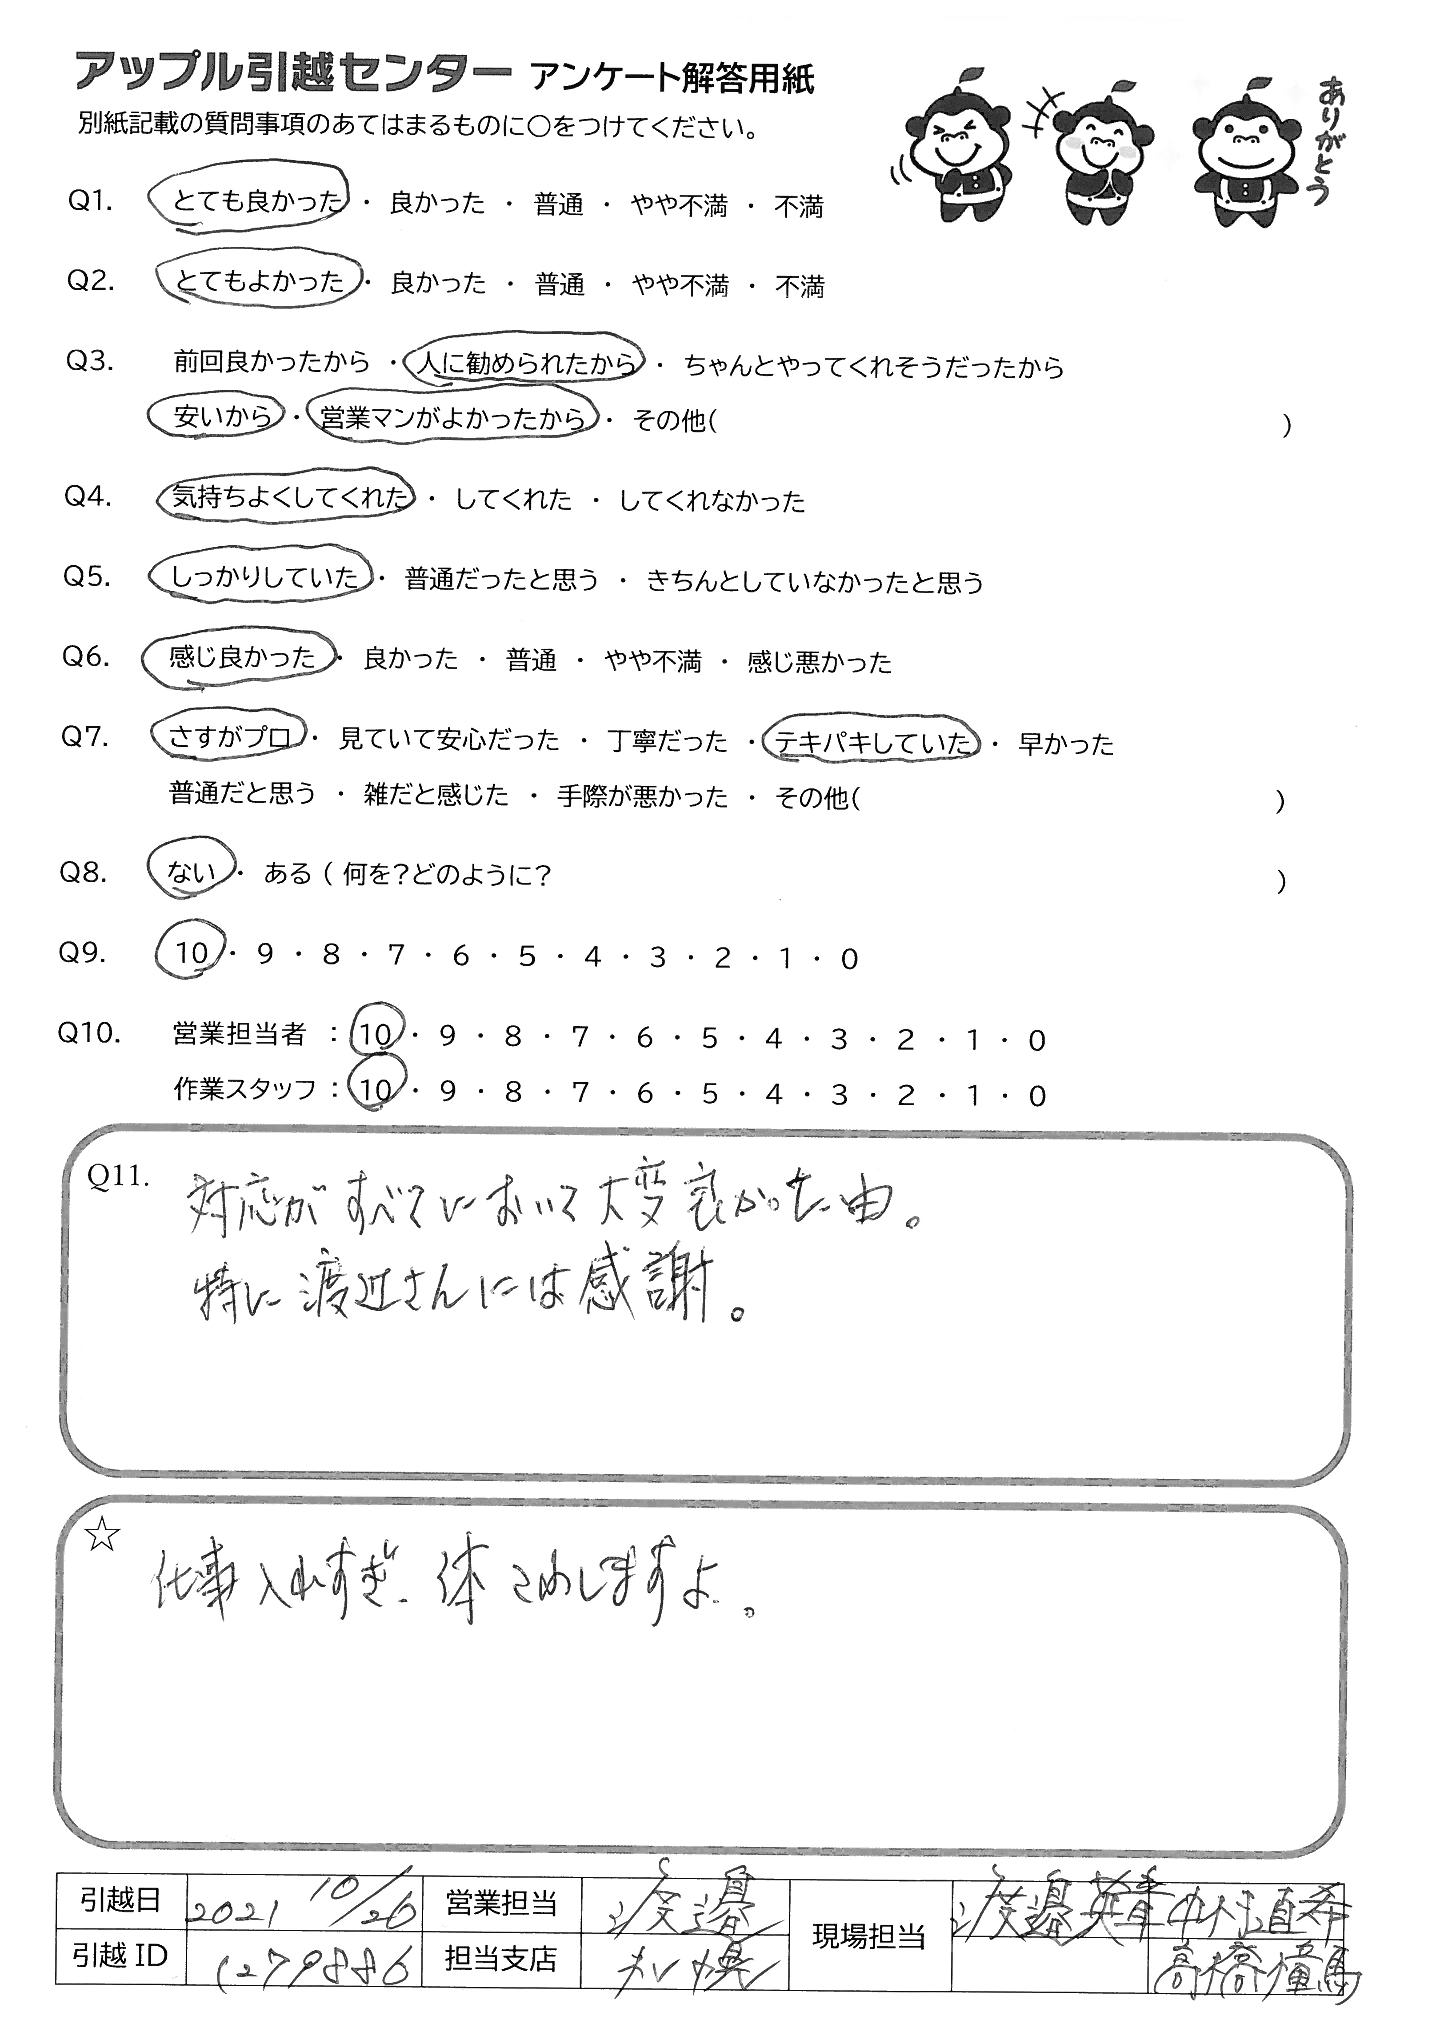 アップル引越センター アンケート解答用紙
別紙記載の質問事項のあてはまるものに○をつけてください。
ありがとう
Q1. とても良かった ・ 良かった ・ 普通 ・ やや不満 ・ 不満
Q2. とてもよかった ・ 良かった ・ 普通 ・ やや不満 ・ 不満
Q3. 前回良かったから ・ 人に勧められたから ・ ちゃんとやってくれそうだったから
安いから ・ 営業マンがよかったから ・ その他( )
Q4. 気持ちよくしてくれた ・ してくれた ・ してくれなかった
Q5. しっかりしていた ・ 普通だったと思う ・ きちんとしていなかったと思う
Q6. 感じ良かった ・ 良かった ・ 普通 ・ やや不満 ・ 感じ悪かった
Q7. さすがプロ ・ 見ていて安心だった ・ 丁寧だった ・ テキパキしていた ・ 早かった
普通だと思う ・ 雑だと感じた ・ 手際が悪かった ・ その他( )
Q8. ない ・ ある ( 何を？どのように？ )
Q9. 10 ・ 9 ・ 8 ・ 7 ・ 6 ・ 5 ・ 4 ・ 3 ・ 2 ・ 1 ・ 0
Q10. 営業担当者 : 10 ・ 9 ・ 8 ・ 7 ・ 6 ・ 5 ・ 4 ・ 3 ・ 2 ・ 1 ・ 0
作業スタッフ : 10 ・ 9 ・ 8 ・ 7 ・ 6 ・ 5 ・ 4 ・ 3 ・ 2 ・ 1 ・ 0
Q11. 対応がすべてにおいて大変良かった由。
特に渡辺さんには感謝。
☆ 仕事入れすぎ、体こわしますよ。
引越日 2021 10/26 営業担当 渡邉 現場担当 渡邉 中村直希
引越 ID 1279886 担当支店 札幌 高橋